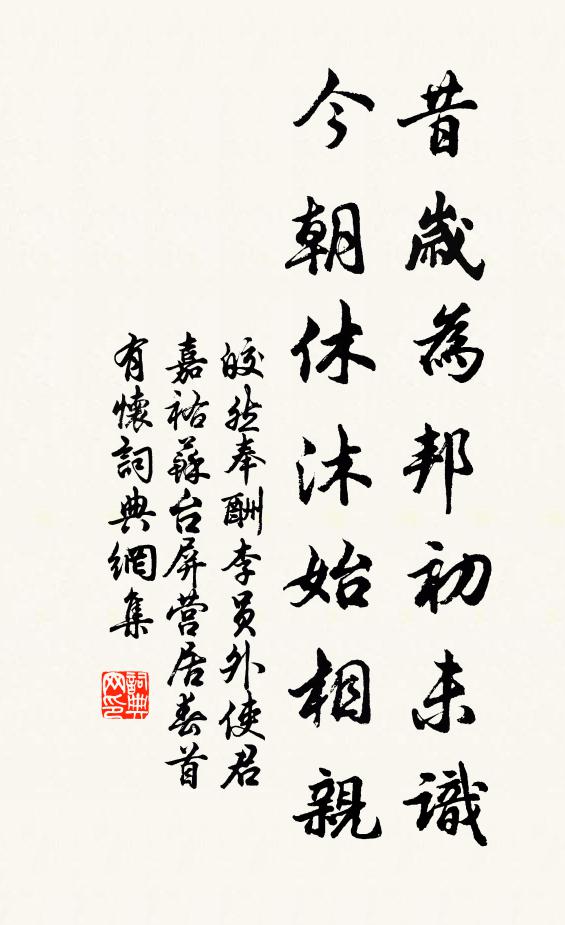 昔歲為邦初未識
今朝休沐始相親
皎然奉酬李员外使君
嘉祐蘇台屏营居春首
有懷詞典網集
詞典
网印